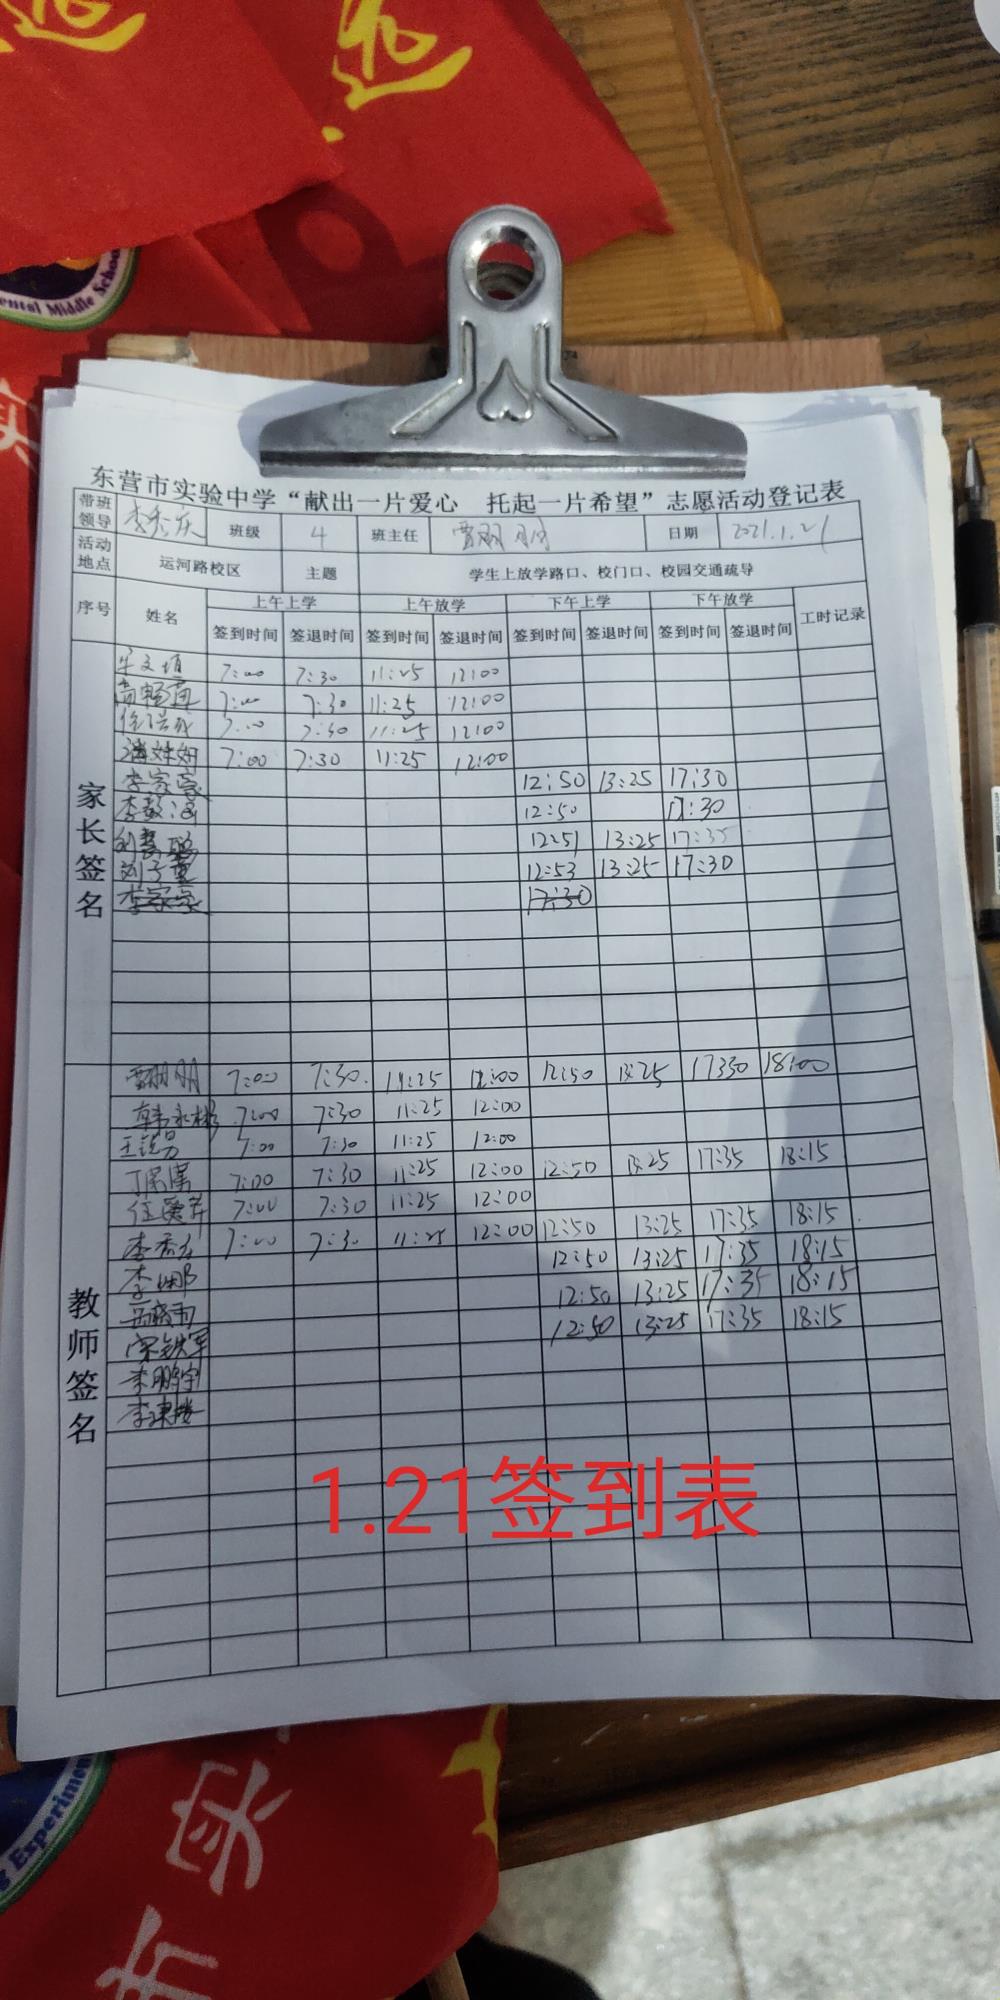 ental Middle School
东营市实验中学“献出一片爱心 托起一片希望”志愿活动登记表
带班领导 李秀庆 班级 4 班主任 贾朋朋 日期 2021.1.21
活动地点 运河路校区 主题 学生上放学路口、校门口、校园交通疏导
序号 姓名 上午上学 上午放学 下午上学 下午放学 工时记录
签到时间 签退时间 签到时间 签退时间 签到时间 签退时间 签到时间 签退时间
家长签名
7:00 7:30 11:25 12:00
7:00 7:30 11:25 12:00
7:00 7:30 11:25 12:00
7:00 7:30 11:25 12:00
李家豪 12:50 13:25 17:30
12:50 17:30
12:51 13:25 17:35
刘子 12:53 13:25 17:30
李家 17:30
教师签名
贾朋朋 7:00 7:30 11:25 12:00 12:50 13:25 17:30 18:00
韩永彬 7:00 7:30 11:25 12:00
王锐男 7:00 7:30 11:25 12:00
7:00 7:30 11:25 12:00 12:50 13:25 17:35 18:15
任爱芹 7:00 7:30 11:25 12:00
李秀庆 7:00 7:30 11:25 12:00 12:50 13:25 17:35 18:15
李娜 12:50 13:25 17:35 18:15
12:50 13:25 17:35 18:15
宋铁军 12:50 13:25 17:35 18:15
李鹏宇
李
1.21签到表
Experimen
市实